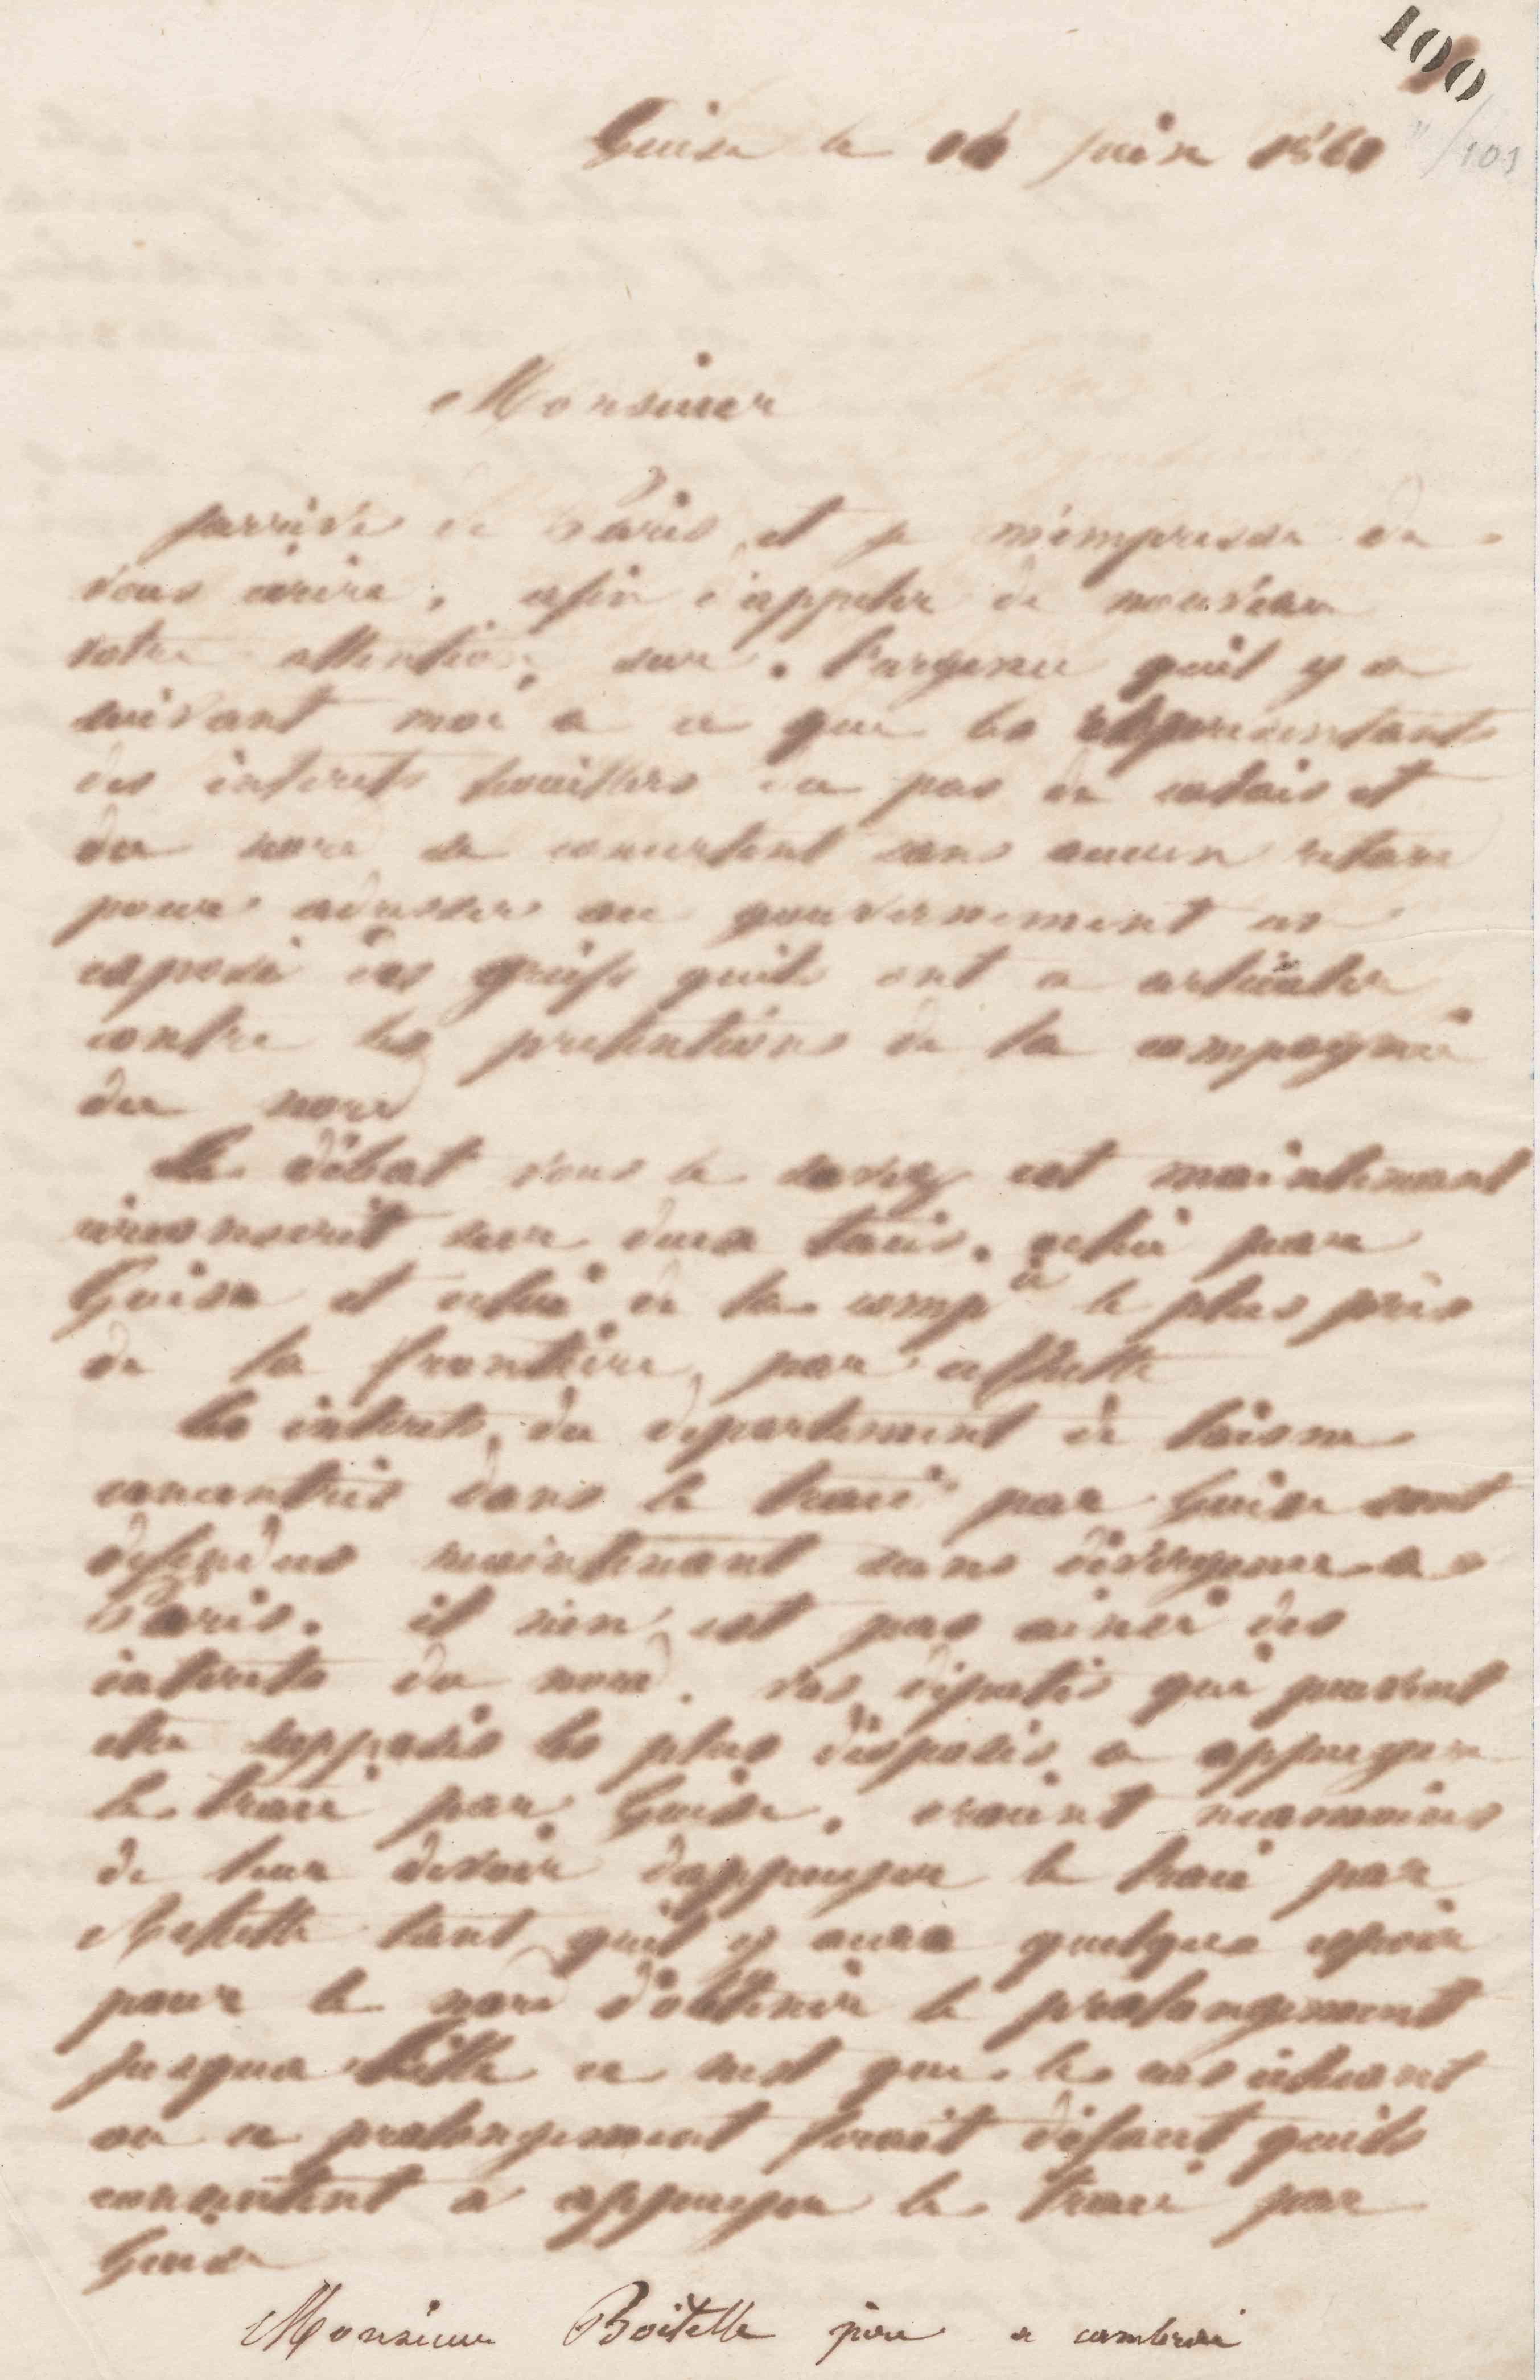 100
101
Guise le 14 juin 1861
Monsieur
j'arrive de Paris et je m'empresse de
vous écrire, afin d'appeler de nouveau
votre attention, sur l'urgence quil y a
suivant moi a ce que les représentants
des intérets houillers du pas de calais et
du nord se concertent sans aucun retard
pour adresser au gouvernement un
exposé des griefs quils ont a articuler
contre les pretentions de la compagnie
du nord
Le débat vous le savez est maintenant
circonscrit sur deux tracés. celui par
Guise et celui de la compie le plus près
de la frontière, par
les intérets du departement de laisne
concentrés dans le tracé par Guise sont
défendus maintenant sans divergence a
Paris. il n'en est pas ainsi des
intérets du nord. vos députés qui peuvent
etre supposés les plus disposés a appuyer
le tracé par Guise. croient neanmoins
de leur devoir d'appuyer le tracé par
tant quil y aura quelque espoir
pour le nord d'obtenir le prolongement
jusqua ce nest que le cas échéant
ou ce prolongement ferait défaut quils
consentent a appuyer le tracé par
Guise
Monsieur Boitelle père a cambrai